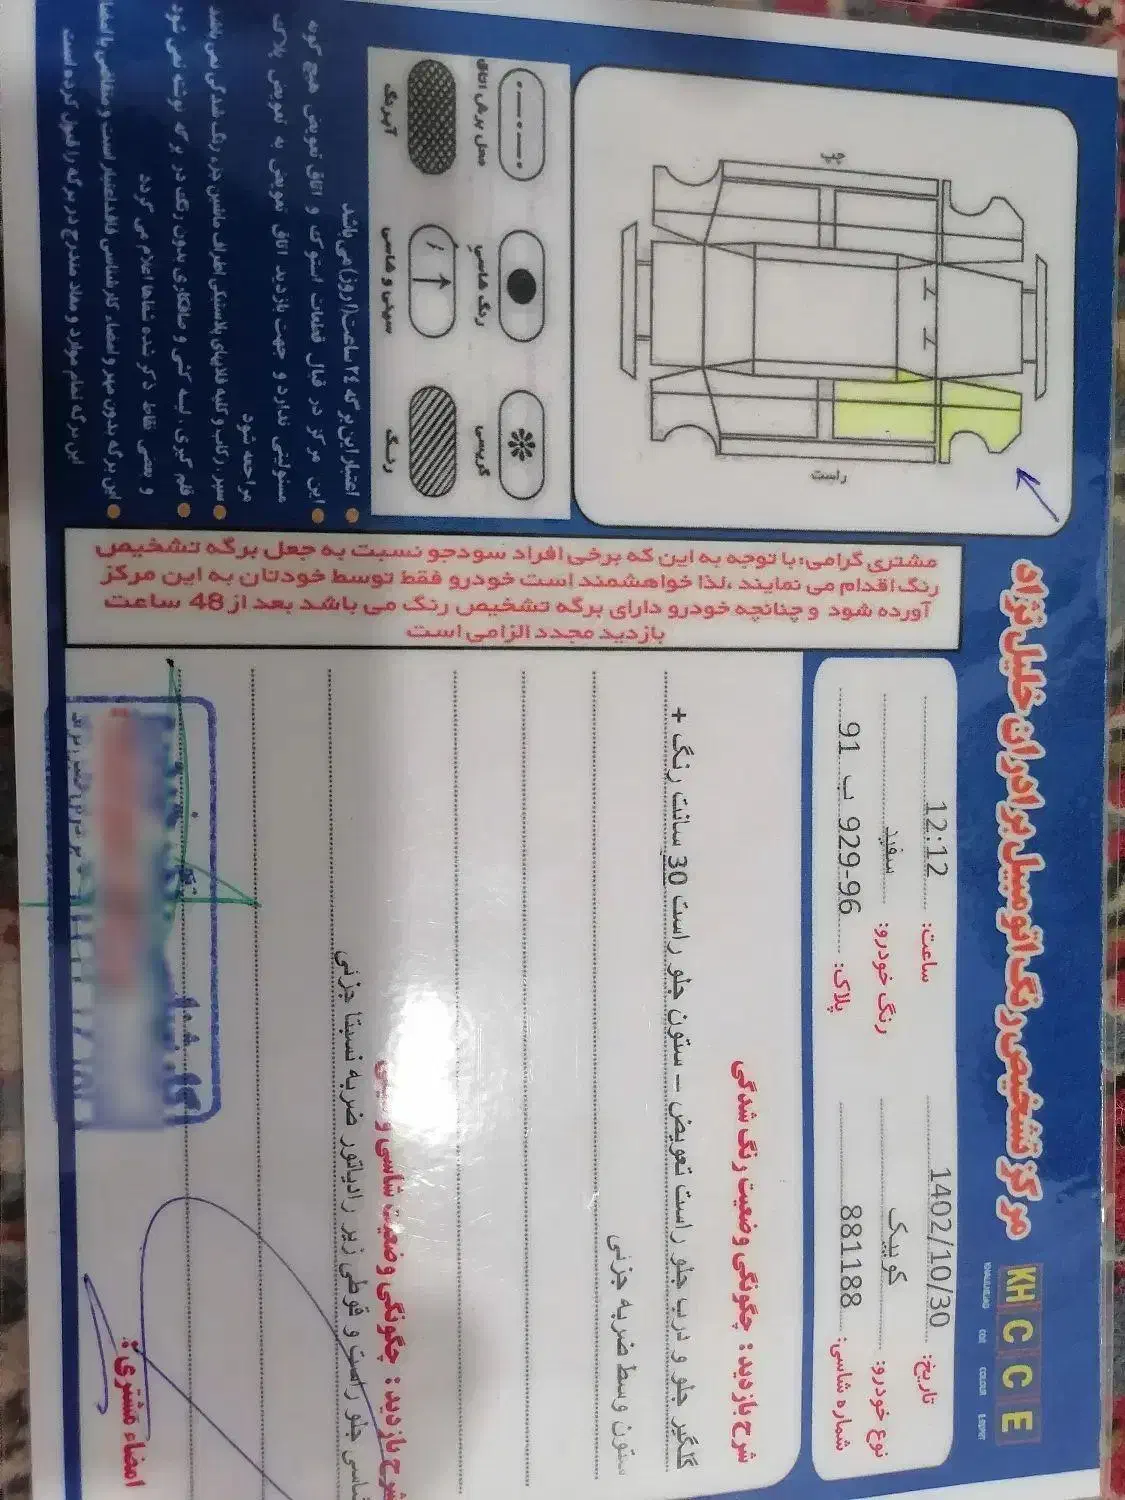 مرکز تشخیص رنگ اتومبیل برادران خلیل نژاد
KH C C E
تاریخ: 1402/10/30
ساعت: 12:12
نوع خودرو: کوییک
رنگ خودرو: سفید
شماره شاسی: 881188
پلاک: 91 ب 929-96
شرح بازدید: چگونگی وضعیت رنگ شدگی
گلگیر جلو و درب جلو راست تعویض – ستون جلو راست 30 سانت رنگ +
ستون وسط ضربه جزئی
شرح بازدید: چگونگی وضعیت شاسی و
شاسی جلو راست و قوطی زیر رادیاتور ضربه نسبتا جزئی
امضاء مشتری:
مشتری گرامی: با توجه به این که برخی افراد سودجو نسبت به جعل برگه تشخیص
رنگ اقدام می نمایند ،لذا خواهشمند است خودرو فقط توسط خودتان به این مرکز
آورده شود و چنانچه خودرو دارای برگه تشخیص رنگ می باشد بعد از 48 ساعت
بازدید مجدد الزامی است
راست
چپ
محل برش اتاق
رنگ شاسی
گریسی
آبرنگ
سینی و شاسی
رنگ
اعتبار این برگه ۲۴ ساعت (۱روز) می باشد
این مرکز در قبال قطعات استوک و اتاق تعویض هیچ گونه
مسئولیتی ندارد و جهت بازدید اتاق تعویض به تعویض پلاک
مراجعه شود
سپر، رکاب و کلیه قابهای پلاستیکی اطراف ماشین جزء رنگ شدگی نمی باشد
قلم گیری، لیسه کشی و صافکاری بدون رنگ در برگه نوشته نمی شود
و بعضی نقاط ذکر شده شفاها اعلام می گردد
این برگه بدون مهر و امضاء کارشناسی فاقد اعتبار است و متقاضی با امضا
این برگه تمام موارد و مفاد مندرج در برگه را قبول کرده است